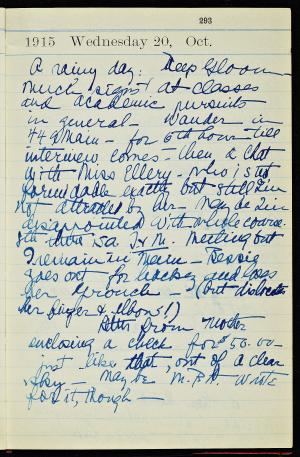 293
1915 Wednesday 20, Oct.
A rainy day: Deep Gloom
much at classes
and academic pursuits
in general – Wander in
449 Main – for 6th hour – till
interview comes – then a chat
with Miss Ellery – who's not
formidable exactly but still I'm
not attracted by her – maybe I'm
disappointed with whole course.
8th hour is a Meeting but
I remain in Main – Bessie
goes out for hockey and loses
her grouch – (but dislocates
her finger & elbow!)
Letter from Mother
enclosing a check for $50.00 –
just like that, out of a clear
sky – maybe write
for it, though –